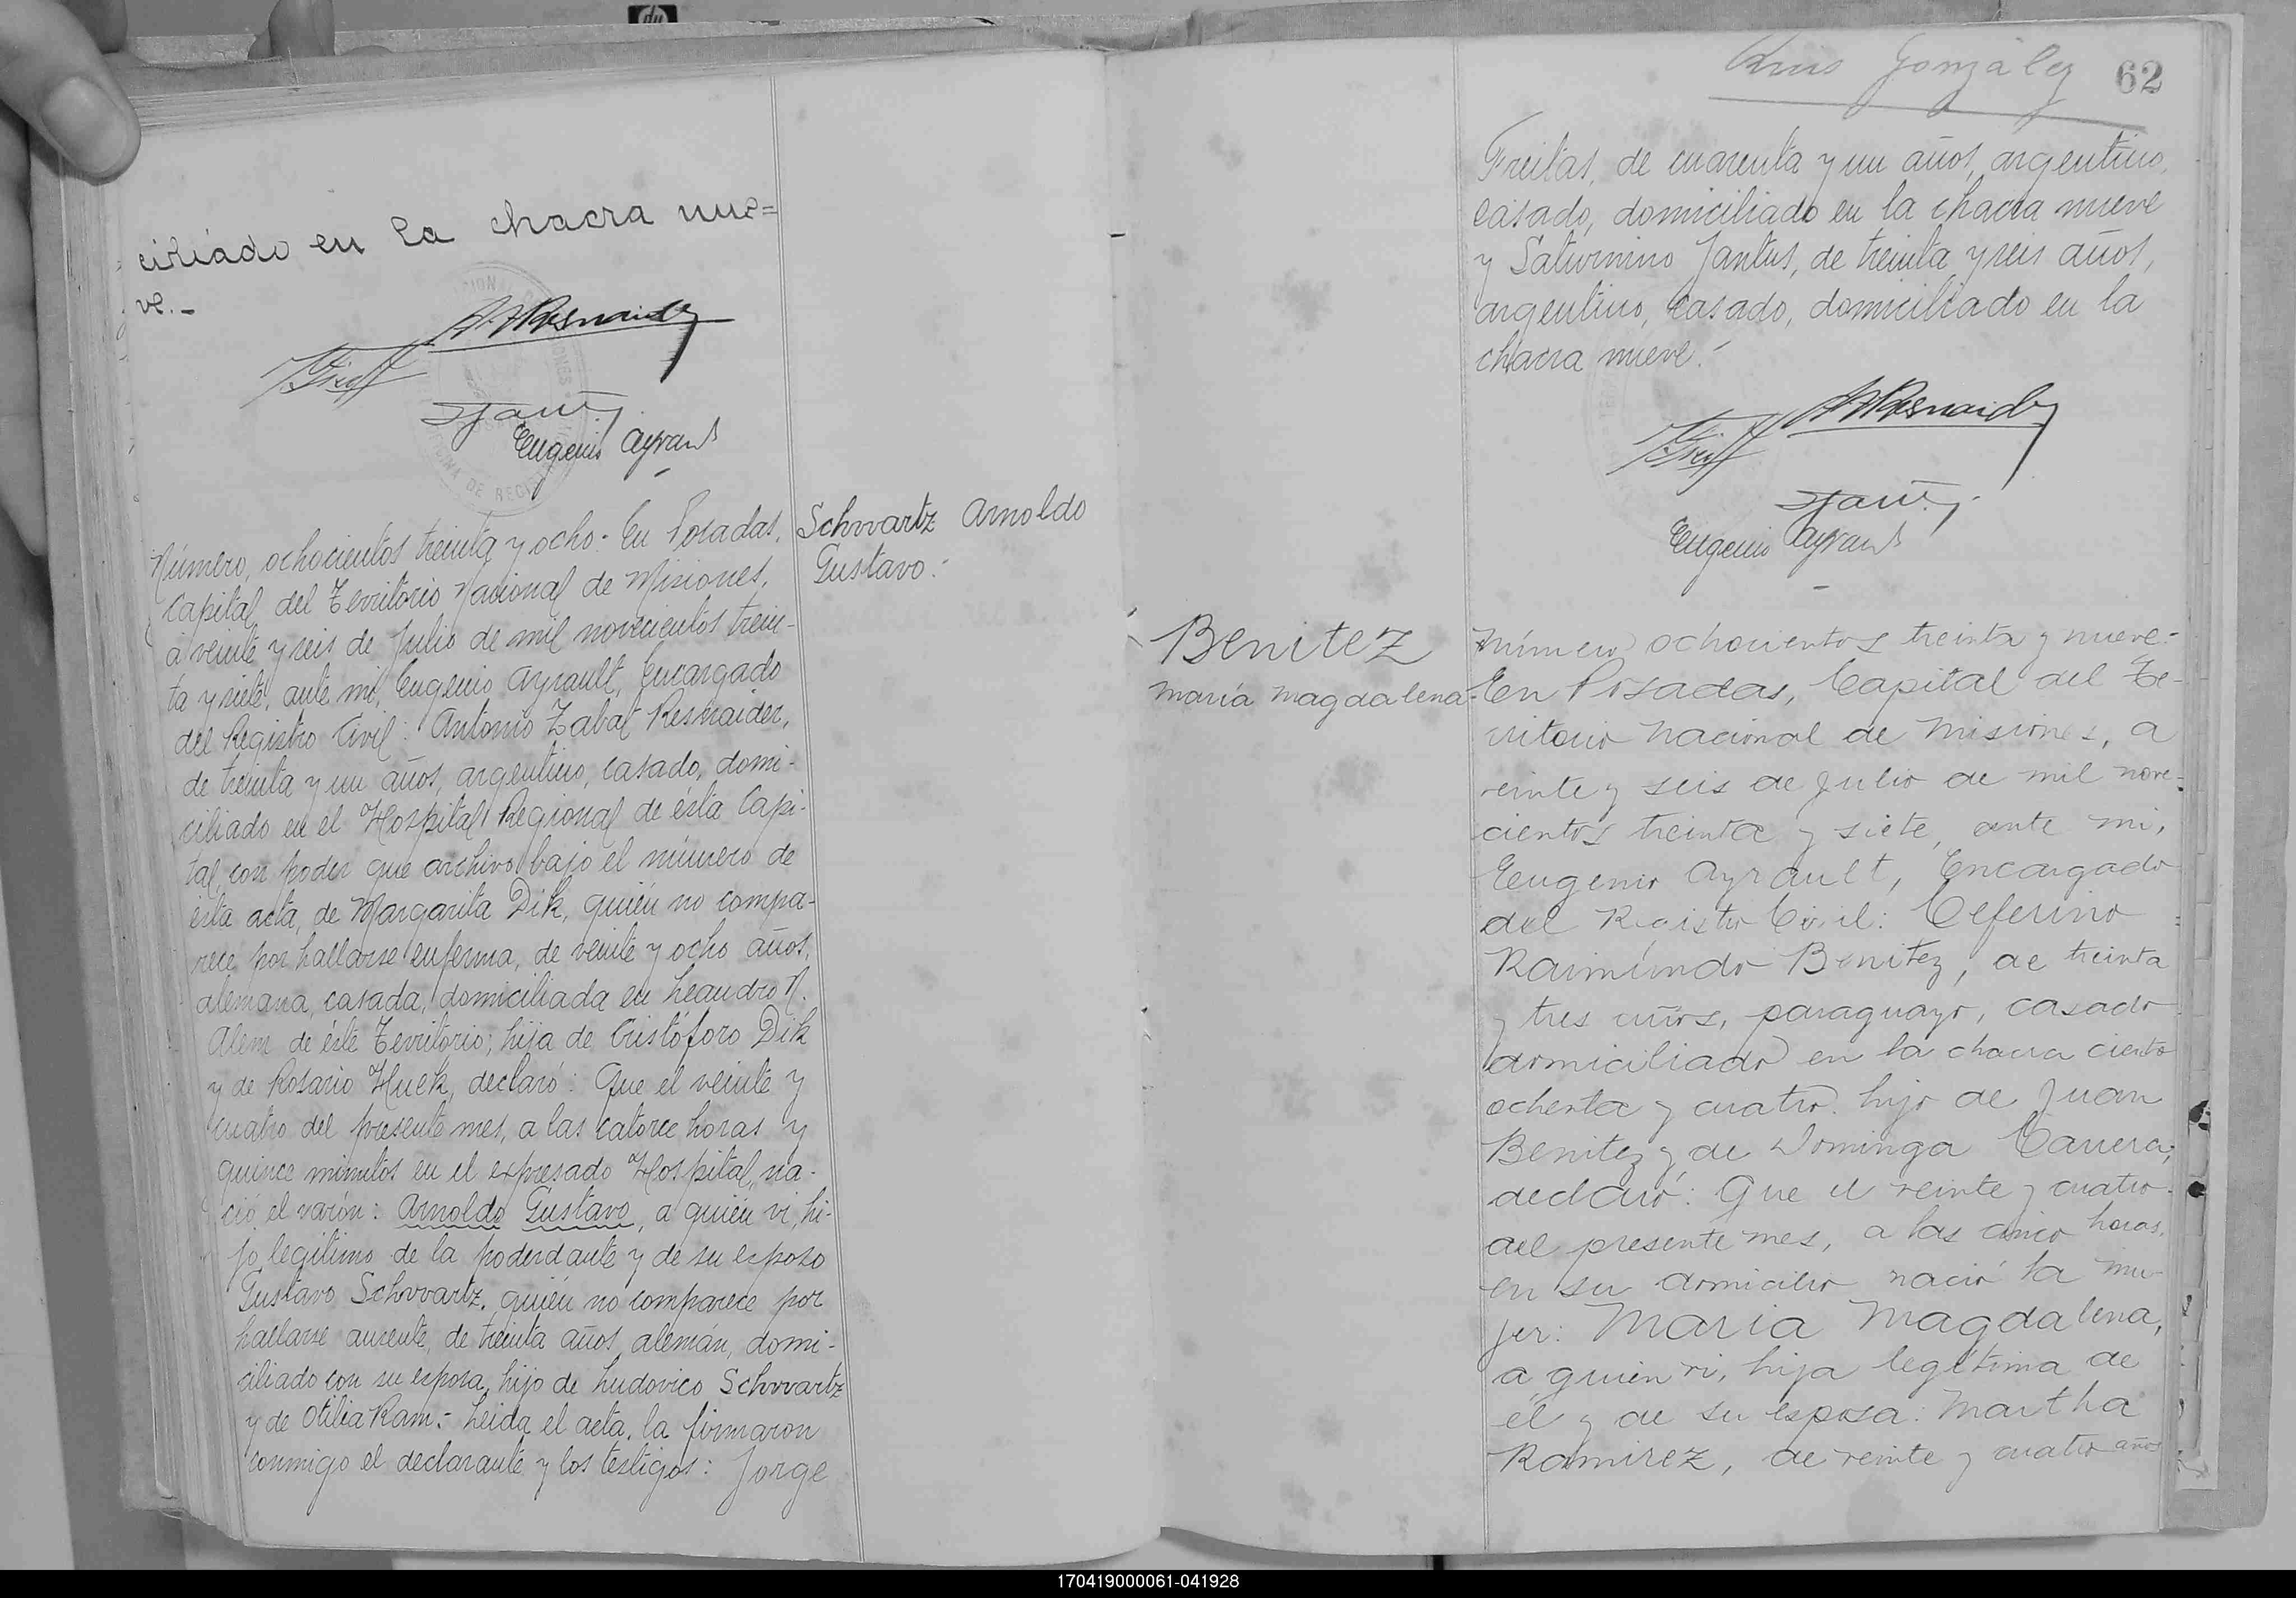 ciliado en la chacra nue=
ve.-
A. Z. Resnaider
Eugenio Ayrault
Schwartz Arnoldo
Gustavo.-
Número, ochocientos treinta y ocho.- En Posadas,
Capital del Territorio Nacional de Misiones,
a veinte y seis de Julio de mil novecientos trein-
ta y siete, ante mi, Eugenio Ayrault, Encargado
del Registro Civil: Antonio Zabat Resnaider,
de treinta y un años, argentino, casado, domi-
ciliado en el Hospital Regional de ésta Capi-
tal, con poder que archivo bajo el número de
ésta acta, de Margarita Dik, quién no compa-
rece por hallarse enferma, de veinte y ocho años,
alemana, casada, domiciliada en Leandro N.
Alem de éste Territorio; hija de Cristóforo Dik
y de Rosario Huek, declaró: Que el veinte y
cuatro del presente mes, a las catorce horas y
quince minutos en el expresado Hospital, na-
ció el varón: Arnoldo Gustavo, a quién vi, hi-
jo legítimo de la poderdante y de su esposo
Gustavo Schwartz, quién no comparece por
hallarse ausente, de treinta años, alemán, domi-
ciliado con su esposa, hijo de Ludovico Schwartz
y de Otilia Ram.- Leida el acta, la firmaron
conmigo el declarante y los testigos: Jorge
Luis González
62
Freitas, de cuarenta y un años, argentino,
casado, domiciliado en la chacra nueve
y Saturnino Jantus, de treinta y seis años,
argentino, casado, domiciliado en la
chacra nueve.-
A. Z. Resnaider
Eugenio Ayrault
Benitez
María Magdalena.
Número ochocientos treinta y nueve.-
En Posadas, Capital del Te-
rritorio Nacional de Misiones, a
veinte y seis de Julio de mil nove-
cientos treinta y siete, ante mi,
Eugenio Ayrault, Encargado
del Registro Civil: Ceferino
Raimundo Benitez, de treinta
y tres años, paraguayo, casado
domiciliado en la chacra ciento
ochenta y cuatro. hijo de Juan
Benitez y de Dominga Carrera;
declaró: Que el veinte y cuatro
del presente mes, a las cinco horas,
en su domicilio nació la mu-
jer: Maria Magdalena,
a quien vi, hija legítima de
él y de su esposa: Martha
Ramirez, de veinte y cuatro años
170419000061-041928